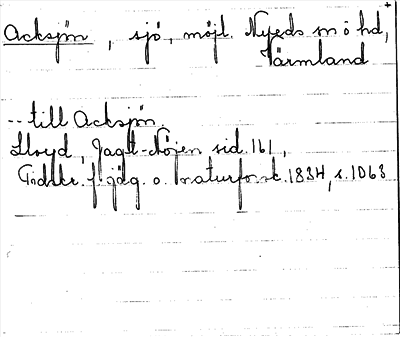 Acksjön, sjö, möjl. Nyeds sn o hd,
Värmland
-- till Acksjön.
Lloyd, Jagt-Nöjen sid. 161,
Tidskr. f. jäg. o. naturforsk. 1834, s. 1063